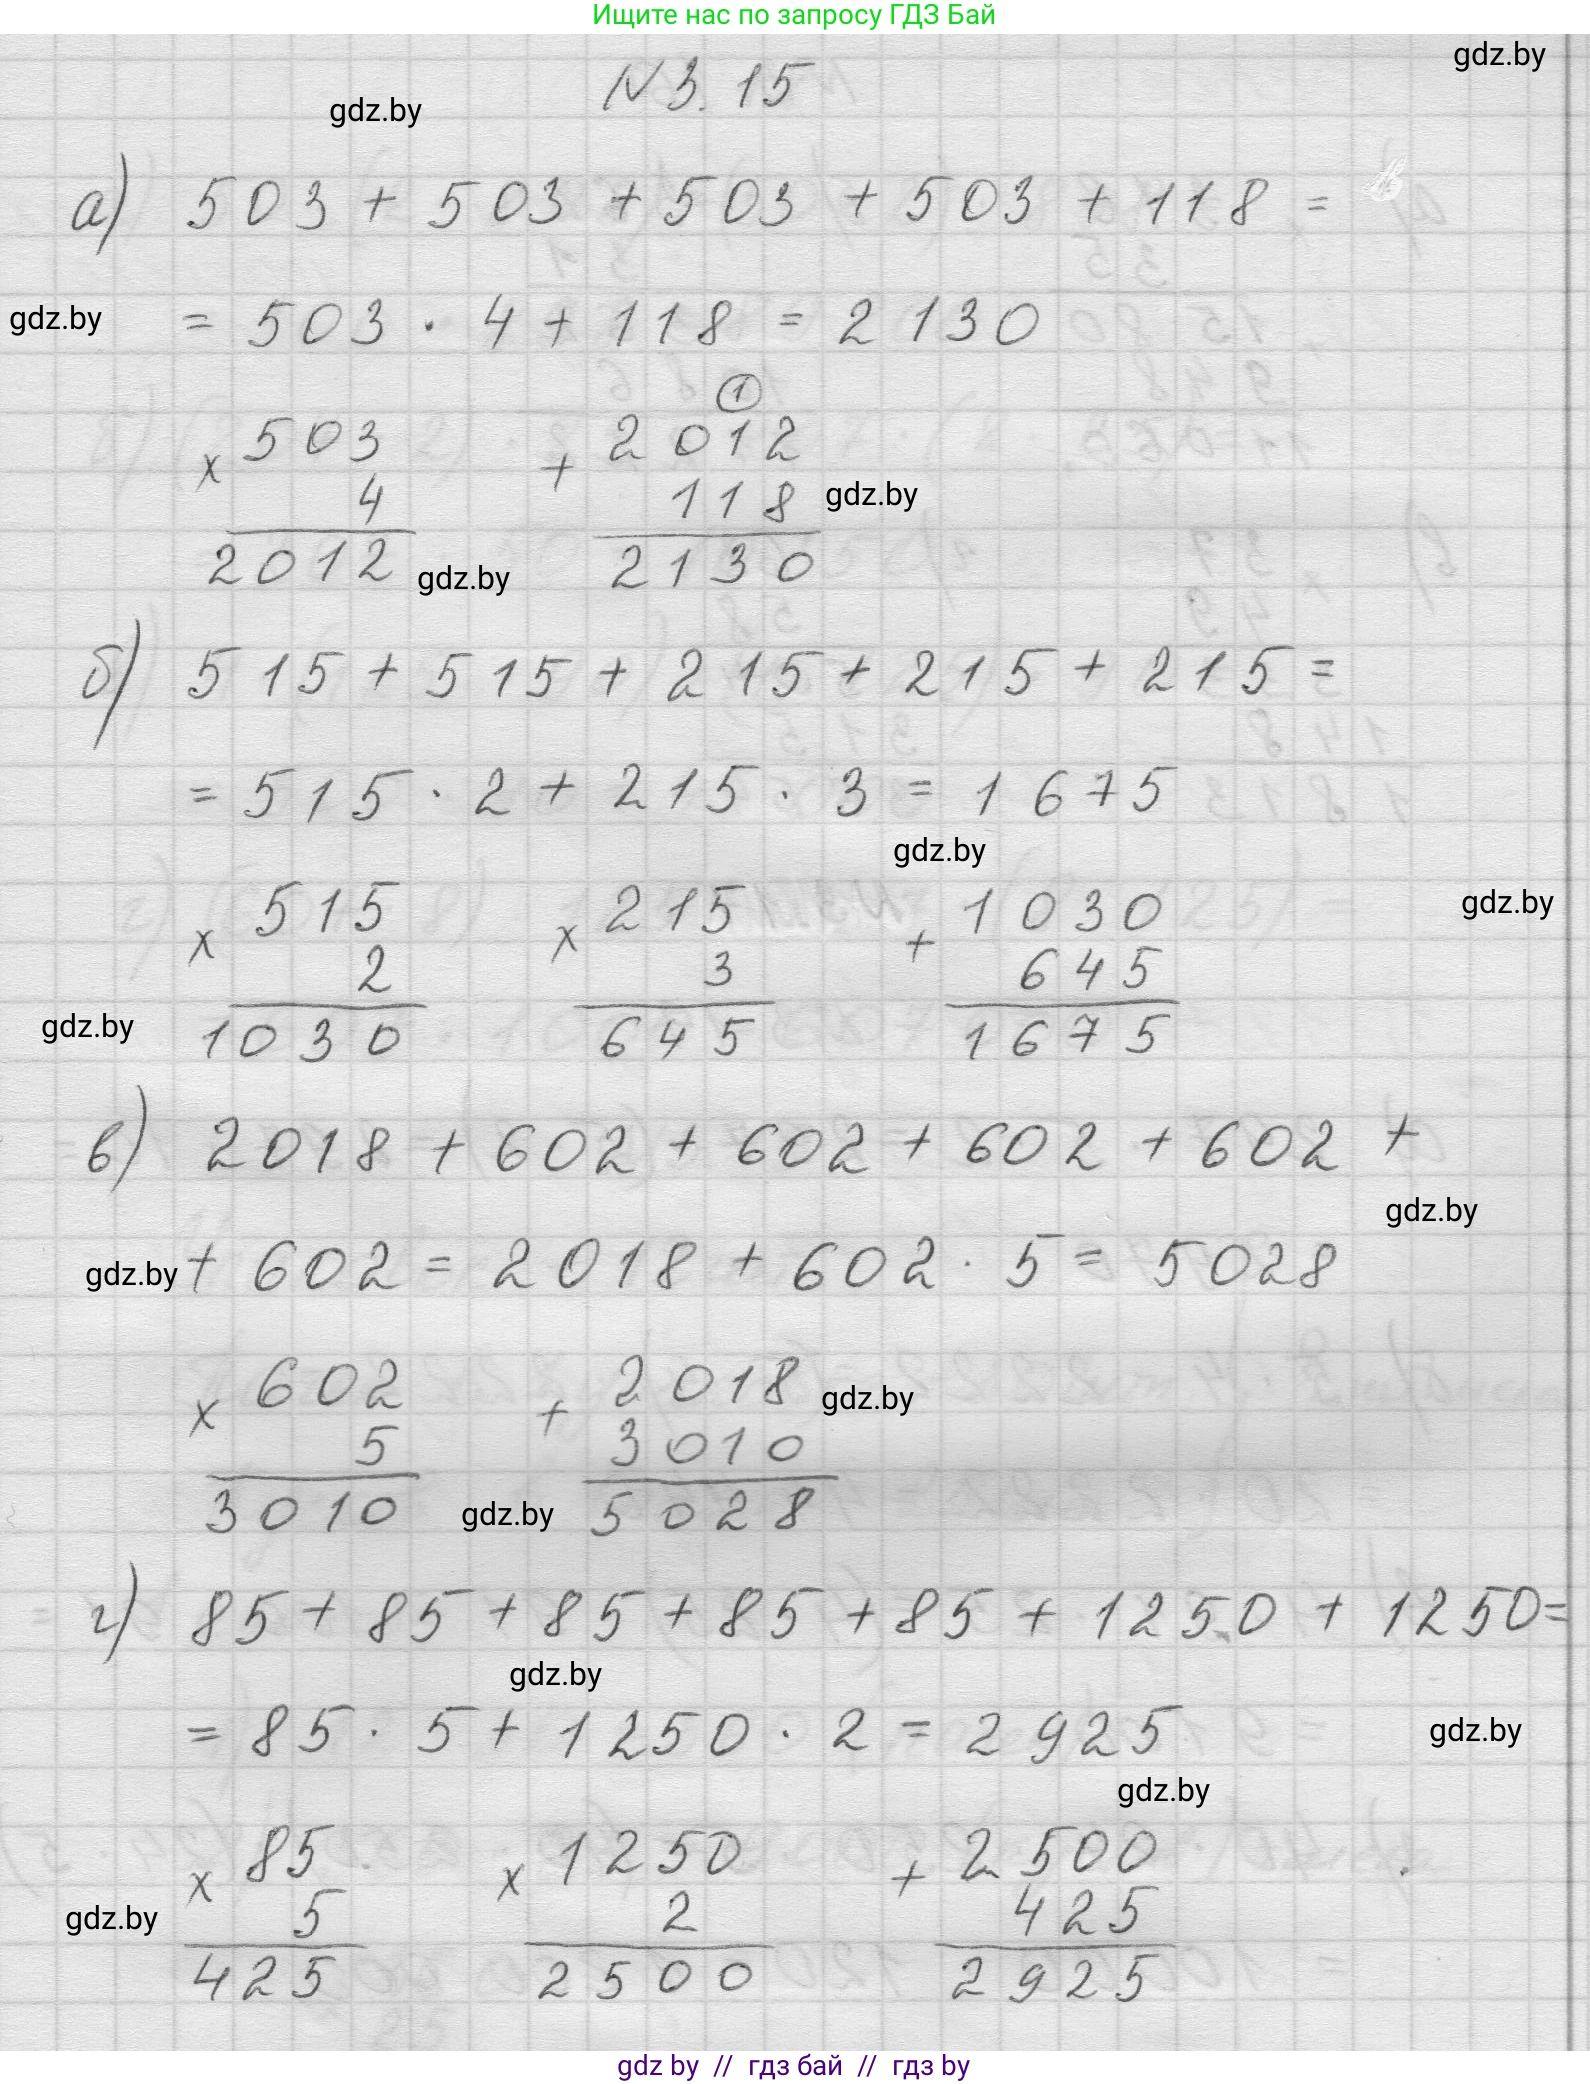 Ищите нас по запросу ГДЗ Бай
gdz.by
N 3.15
gdz.by
а) 503 + 503 + 503 + 503 + 118 =
gdz.by
= 503 · 4 + 118 = 2130
1
× 503 + 2012
4 118 gdz.by
2012 gdz.by 2130
б) 515 + 515 + 215 + 215 + 215 =
= 515 · 2 + 215 · 3 = 1675
gdz.by
× 515 × 215 + 1030 gdz.by
2 3 645
gdz.by 1030 645 1675
в) 2018 + 602 + 602 + 602 + 602 +
gdz.by
gdz.by + 602 = 2018 + 602 · 5 = 5028
× 602 + 2018 gdz.by
5 3010
3010 gdz.by 5028
г) 85 + 85 + 85 + 85 + 85 + 1250 + 1250 =
gdz.by
= 85 · 5 + 1250 · 2 = 2925 gdz.by
gdz.by
× 85 × 1250 + 2500
gdz.by 5 2 425
425 2500 2925
gdz by // гдз бай // гдз by